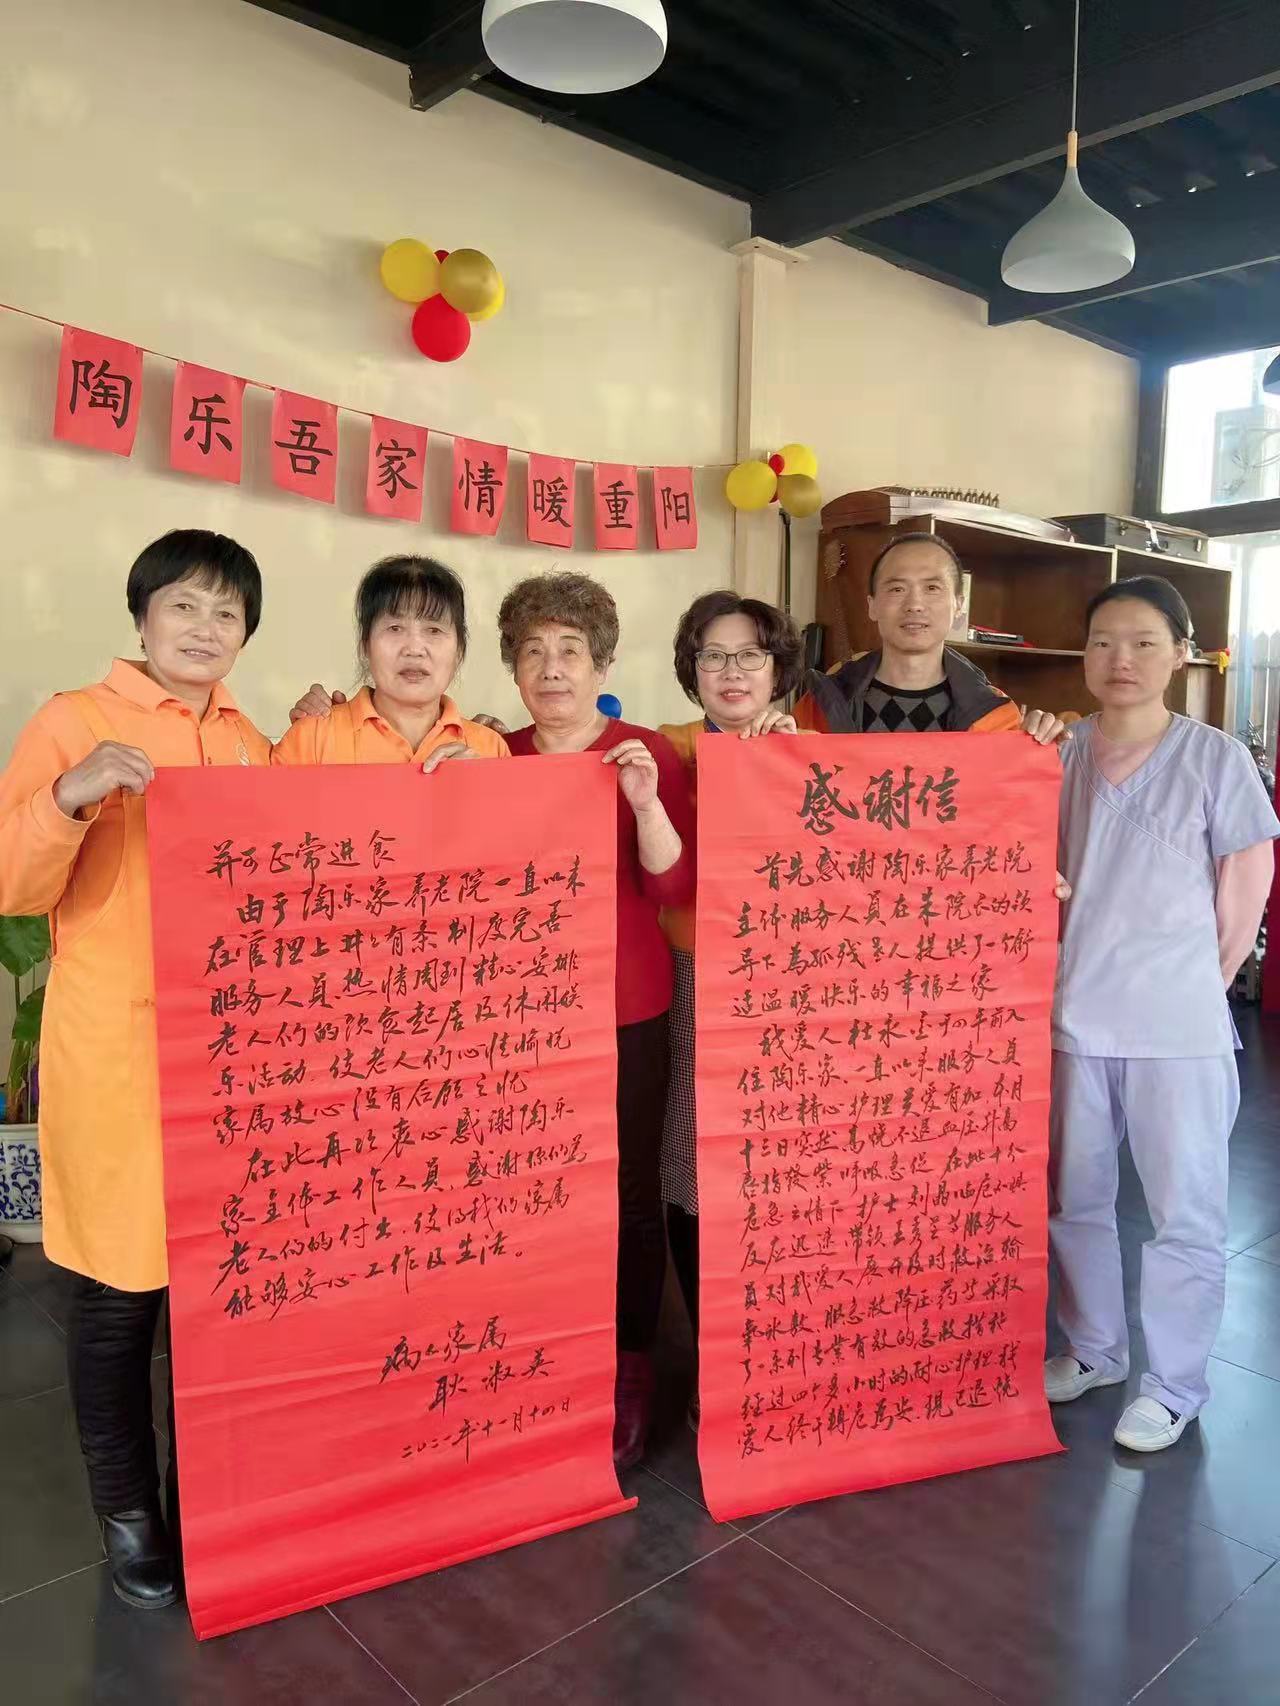 陶乐吾家情暖重阳
感谢信
首先感谢陶乐家养老院
全体服务人员在朱院长的领
导下为孤残老人提供了一个舒
适温暖快乐的幸福之家
我爱人杜永金于四年前入
住陶乐家.一直以来服务人员
对他精心护理关爱有加.本月
十三日突然高烧不退血压升高
唇指發紫呼吸急促 在此十分
危急之情下 护士刘晶临危不惧
反应迅速 带领王秀兰等服务人
员对我爱人展开及时救治输
氧冰敷.服急救降压药等采取
了一系列专業有效的急救措施
经过四十多小时的耐心护理 我
爱人终于转危為安.现已退烧
并可正常进食
由于陶乐家养老院一直以来
在管理上井井有条制度完善
服务人员热情周到精心安排
老人们的饮食起居及休闲娱
乐活动.使老人们心情愉悦
家属放心没有后顾之忧
在此再次衷心感谢陶乐
家全体工作人员.感谢你们為
老人们的付出.使得我们家属
能够安心工作及生活。
病人家属
耿淑英
二〇二一年十一月十四日